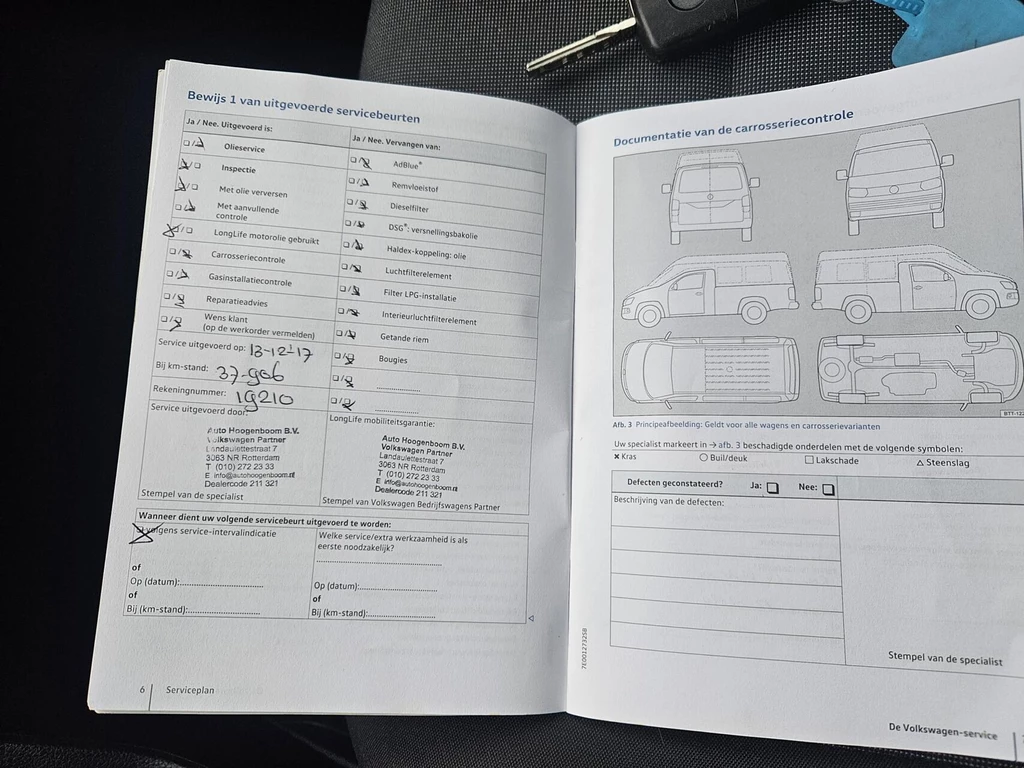 Bewijs 1 van uitgevoerde servicebeurten
Ja / Nee. Uitgevoerd is:
Olieservice
Inspectie
Met olie verversen
Met aanvullende
controle
LongLife motorolie gebruikt
Carrosseriecontrole
Gasinstallatiecontrole
Reparatieadvies
Wens klant
(op de werkorder vermelden)
Service uitgevoerd op: 13-12-17
Bij km-stand: 37-906
Rekeningnummer: 19210
Service uitgevoerd door:
Auto Hoogenboom B.V.
Volkswagen Partner
Landaulettestraat 7
3063 NR Rotterdam
T (010) 272 23 33
E info@autohoogenboom.nl
Dealercode 211 321
Stempel van de specialist
Ja / Nee. Vervangen van:
AdBlue®
Remvloeistof
Dieselfilter
DSG®: versnellingsbakolie
Haldex-koppeling: olie
Luchtfilterelement
Filter LPG-installatie
Interieurluchtfilterelement
Getande riem
Bougies
LongLife mobiliteitsgarantie:
Auto Hoogenboom B.V.
Volkswagen Partner
Landaulettestraat 7
3063 NR Rotterdam
T (010) 272 23 33
E info@autohoogenboom.nl
Dealercode 211 321
Stempel van Volkswagen Bedrijfswagens Partner
Wanneer dient uw volgende servicebeurt uitgevoerd te worden:
volgens service-intervalindicatie
of
Op (datum):
of
Bij (km-stand):
Welke service/extra werkzaamheid is als
eerste noodzakelijk?
Op (datum):
of
Bij (km-stand):
6 Serviceplan
Documentatie van de carrosseriecontrole
BTT-122
Afb. 3 Principeafbeelding: Geldt voor alle wagens en carrosserievarianten
Uw specialist markeert in → afb. 3 beschadigde onderdelen met de volgende symbolen:
Kras Buil/deuk Lakschade Steenslag
Defecten geconstateerd? Ja: Nee:
Beschrijving van de defecten:
Stempel van de specialist
7E0012732SB
De Volkswagen-service